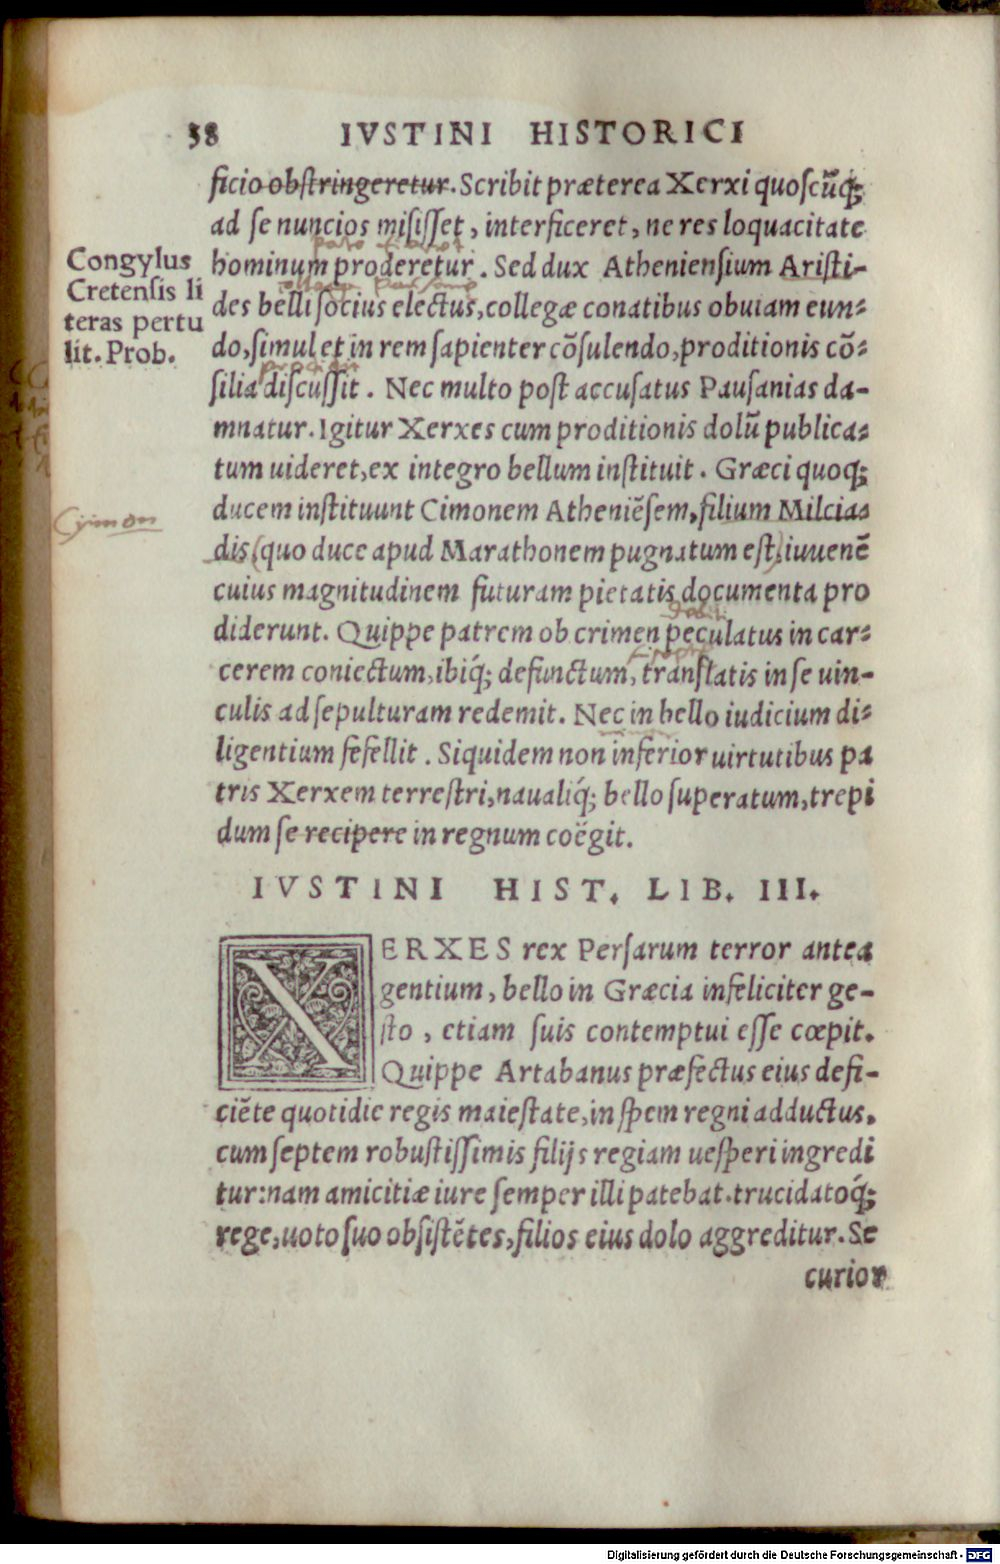 38 IVSTINI HISTORICI
ficio obstringeretur. Scribit præterea Xerxi quoscũq;
ad se nuncios misisset, interficeret, ne res loquacitate
hominum proderetur. Sed dux Atheniensium Aristi-
des belli socius electus, collegæ conatibus obuiam eun-
do, simul et in rem sapienter cõsulendo, proditionis cõ-
silia discussit. Nec multo post accusatus Pausanias da-
mnatur. Igitur Xerxes cum proditionis dolũ publica-
tum uideret, ex integro bellum instituit. Græci quoq;
ducem instituunt Cimonem Atheniẽsem, filium Milcia-
dis (quo duce apud Marathonem pugnatum est) iuuenẽ
cuius magnitudinem futuram pietatis documenta pro
diderunt. Quippe patrem ob crimen peculatus in car-
cerem coniectum, ibiq́; defunctum, translatis in se uin-
culis ad sepulturam redemit. Nec in bello iudicium di-
ligentium fefellit. Siquidem non inferior uirtutibus pa
tris Xerxem terrestri, naualiq́; bello superatum, trepi
dum se recipere in regnum coëgit.
Congylus
Cretensis li
teras pertu
lit. Prob.
Cymon
IVSTINI HIST. LIB. III.
XERXES rex Persarum terror antea
gentium, bello in Græcia infeliciter ge-
sto, etiam suis contemptui esse cœpit.
Quippe Artabanus præfectus eius defi-
ciẽte quotidie regis maiestate, in spem regni adductus.
cum septem robustissimis filijs regiam uesperi ingredi
tur: nam amicitiæ iure semper illi patebat. trucidatoq́;
rege, uoto suo obsistẽtes, filios eius dolo aggreditur. Se
curior
Digitalisierung gefördert durch die Deutsche Forschungsgemeinschaft - DFG